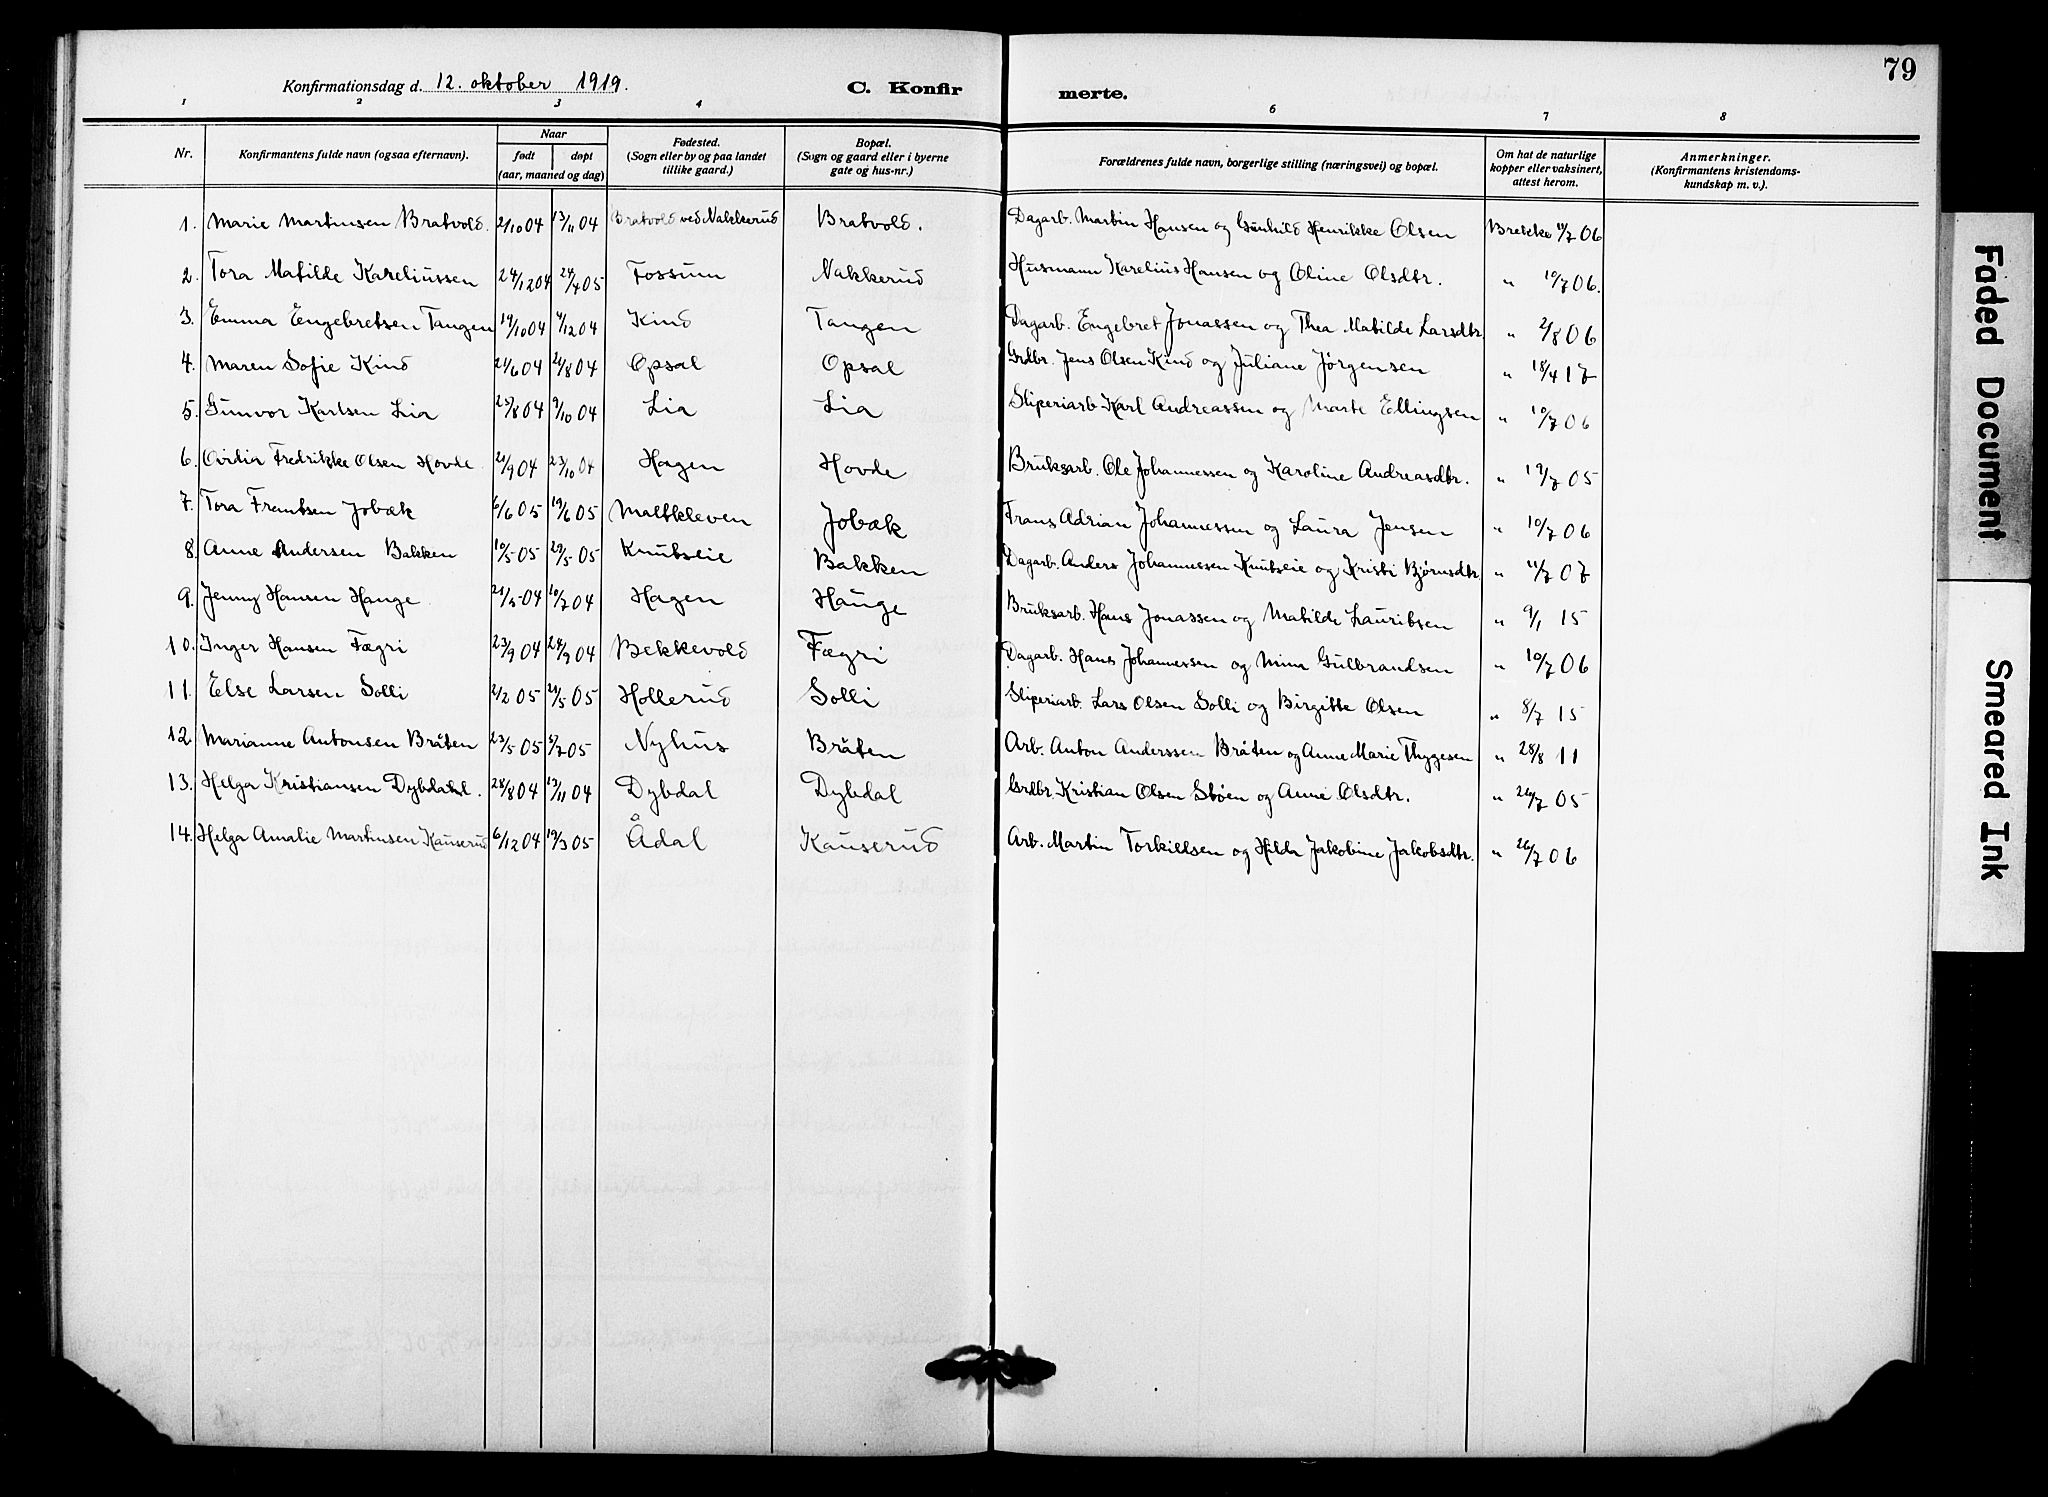 79
Konfirmationsdag d. 12. oktober 1919.
C. Konfirmerte.
1 2 3 4 6 7 8
Nr. Konfirmantens fulde navn (ogsaa efternavn). Naar født døpt (aar, maaned og dag) Fødested. (Sogn eller by og paa landet tillike gaard.) Bopæl. (Sogn og gaard eller i byerne gate og hus-nr.) Forældrenes fulde navn, borgerlige stilling (næringsvei) og bopæl. Om hat de naturlige kopper eller vaksinert, attest herom. Anmerkninger. (Konfirmantens kristendomskundskap m. v.).
1. Marie Martinsen Bratvold. 2/10 04 13/11 04 Bratvold ved Nakkerud Bratvold. Dagarb. Martin Hansen og Gunhild Henrikke Olsen Brekke 11/7 06
2. Tora Matilde Kareliussen 24/12 04 24/4 05 Fossum Nakkerud Husmann Karelius Hansen og Oline Olsdtr. " 10/7 06.
3. Emma Engebretsen Tangen 14/10 04 4/12 04 Kind Tangen Dagarb. Engebret Jonassen og Thea Matilde Larsdtr. " 2/8 06
4. Maren Sofie Kind 24/6 04 21/8 04 Opsal Opsal Grdbr. Jens Olsen Kind og Juliane Jørgensen " 18/4 17
5. Gunvor Karlsen Lia 25/8 04 9/10 04 Lia Lia Sliperiarb. Karl Andreassen og Marte Ellingsen " 10/7 06
6. Ovidia Fredrikke Olsen Hovde 21/9 04 23/10 04 Hagen Hovde Bruksarb. Ole Johannessen og Karoline Andreasdtr. " 19/7 05
7. Tora Frantsen Jobæk 6/6 05 19/6 05 Maltkleven Jobæk Frans Adrian Johannessen og Laura Jensen " 10/7 06
8. Anne Andersen Bakken 10/5 05 29/5 05 Knutseie Bakken Dagarb. Anders Johannessen Knutseie og Kristi Bjørnsdtr. " 11/7 07
9. Jenny Hansen Hauge 21/5 04 10/7 04 Hagen Hauge Bruksarb. Hans Jonassen og Matilde Lauritsen " 9/1 15
10. Inger Hansen Fægri 23/9 04 24/9 04 Bekkevold Fægri Dagarb. Hans Johannessen og Mina Gulbrandsen " 10/7 06
11. Else Larsen Solli 2/2 05 21/5 05 Hollerud Solli Sliperiarb. Lars Olsen Solli og Birgitte Olsen " 8/7 15
12. Marianne Antonsen Bråten 23/5 05 5/7 05 Nyhus Bråten Arb. Anton Anderssen Bråten og Anne Marie Thygesen " 28/8 11
13. Helga Kristiansen Dybdahl. 28/8 04 13/11 04 Dybdal Dybdal Grdbr. Kristian Olsen Støen og Anne Olsdtr. " 26/7 05
14. Helga Amalie Martinsen Kauserud 6/12 04 19/3 05 Ådal Kauserud Arb. Martin Torkielsen og Hilda Jakobine Jakobsdtr. " 26/7 06
Faded Document
Smeared Ink